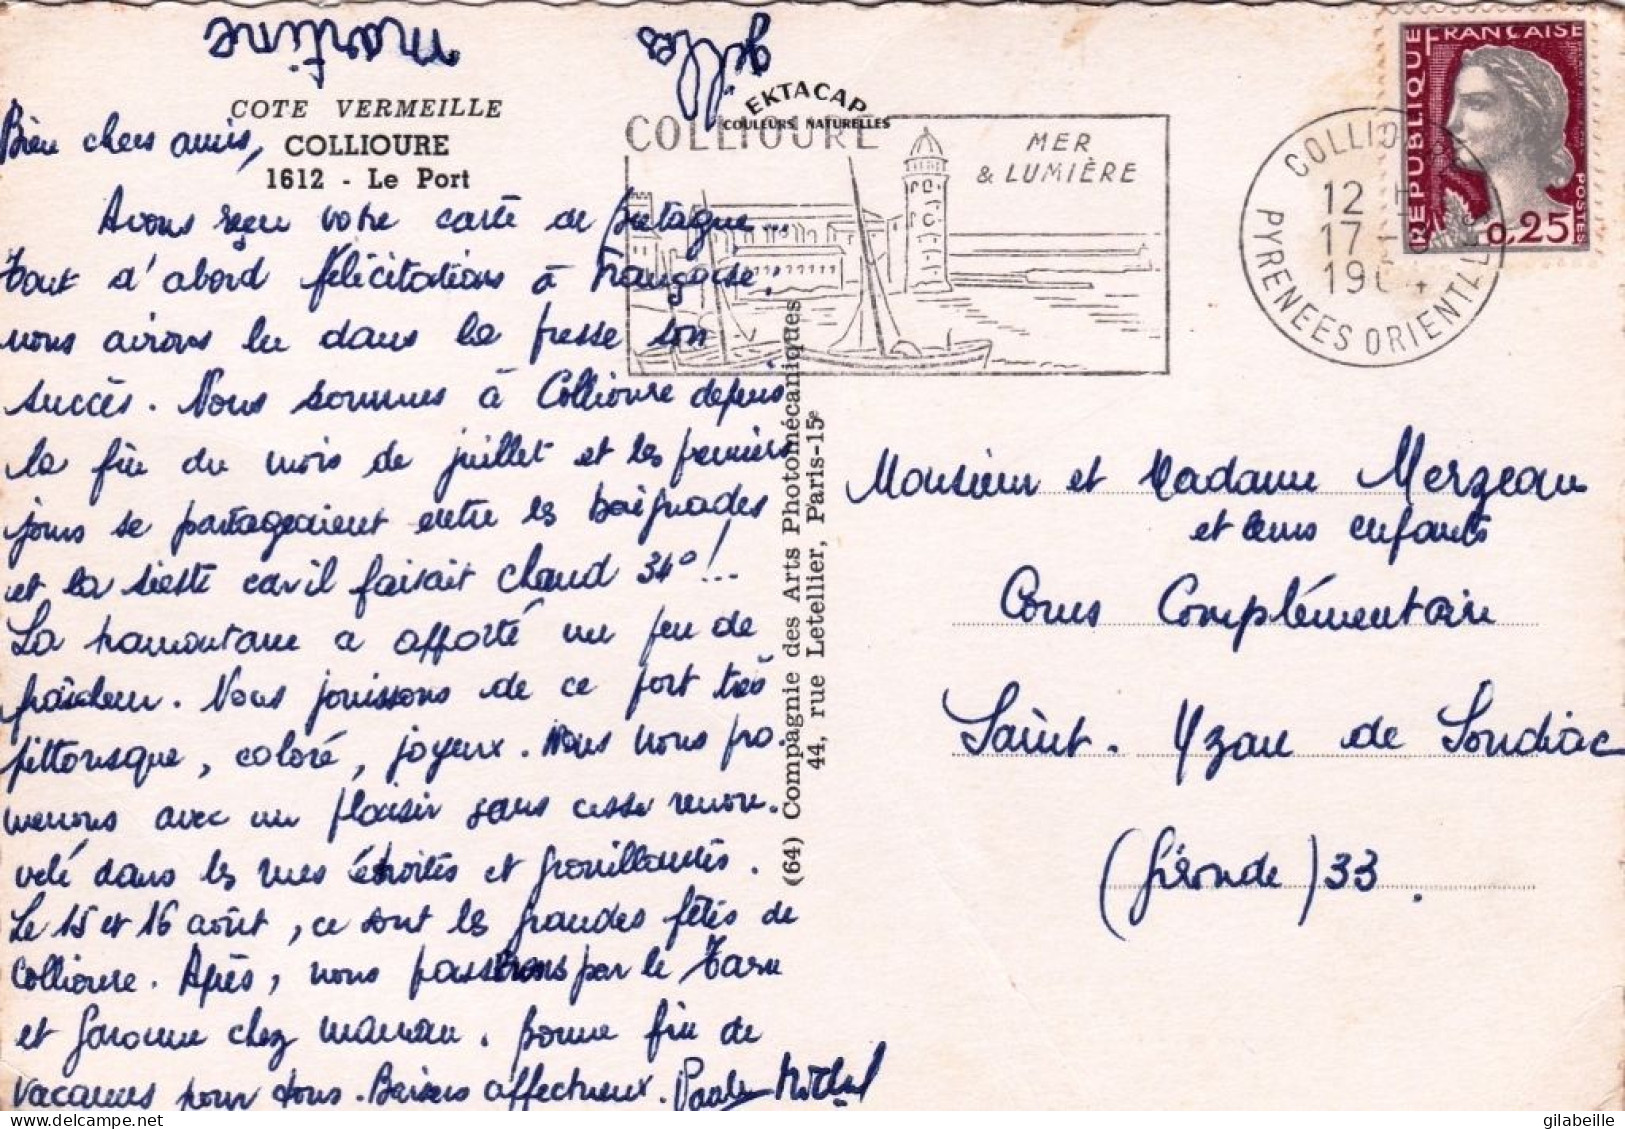 Martine
gilles
COTE VERMEILLE
COLLIOURE
1612 - Le Port
EKTACAP
COULEURS NATURELLES
COLLIOURE
MER
& LUMIÈRE
COLLIOURE
12 H
17 -
1964
PYRENEES ORIENTLES
REPUBLIQUE FRANÇAISE
POSTES
0,25
Bien chers amis,
Avons reçu votre carte de Bretagne...
Tout d'abord félicitations à Françoise :
nous avions lu dans la presse son
succès. Nous sommes à Collioure depuis
la fin du mois de juillet et les premiers
jours se partageaient entre les baignades
et la sieste car il faisait chaud 34° !...
La tramontane a apporté un peu de
fraîcheur. Nous jouissons de ce port très
pittoresque, coloré, joyeux. Nous nous pro-
menons avec un plaisir sans cesse renou-
velé dans les rues étroites et grouillantes.
Le 15 et 16 août, ce sont les grandes fêtes de
Collioure. Après, nous passerons par le Tarn
et Garonne chez maman. Bonne fin de
vacances pour tous. Baisers affectueux. Paule Michel
(64) Compagnie des Arts Photomécaniques
44, rue Letellier, Paris-15e
Monsieur et Madame Merzeau
et leurs enfants
Cours Complémentaire
Saint-Yzan de Soudiac
(Gironde) 33.
gilabeille